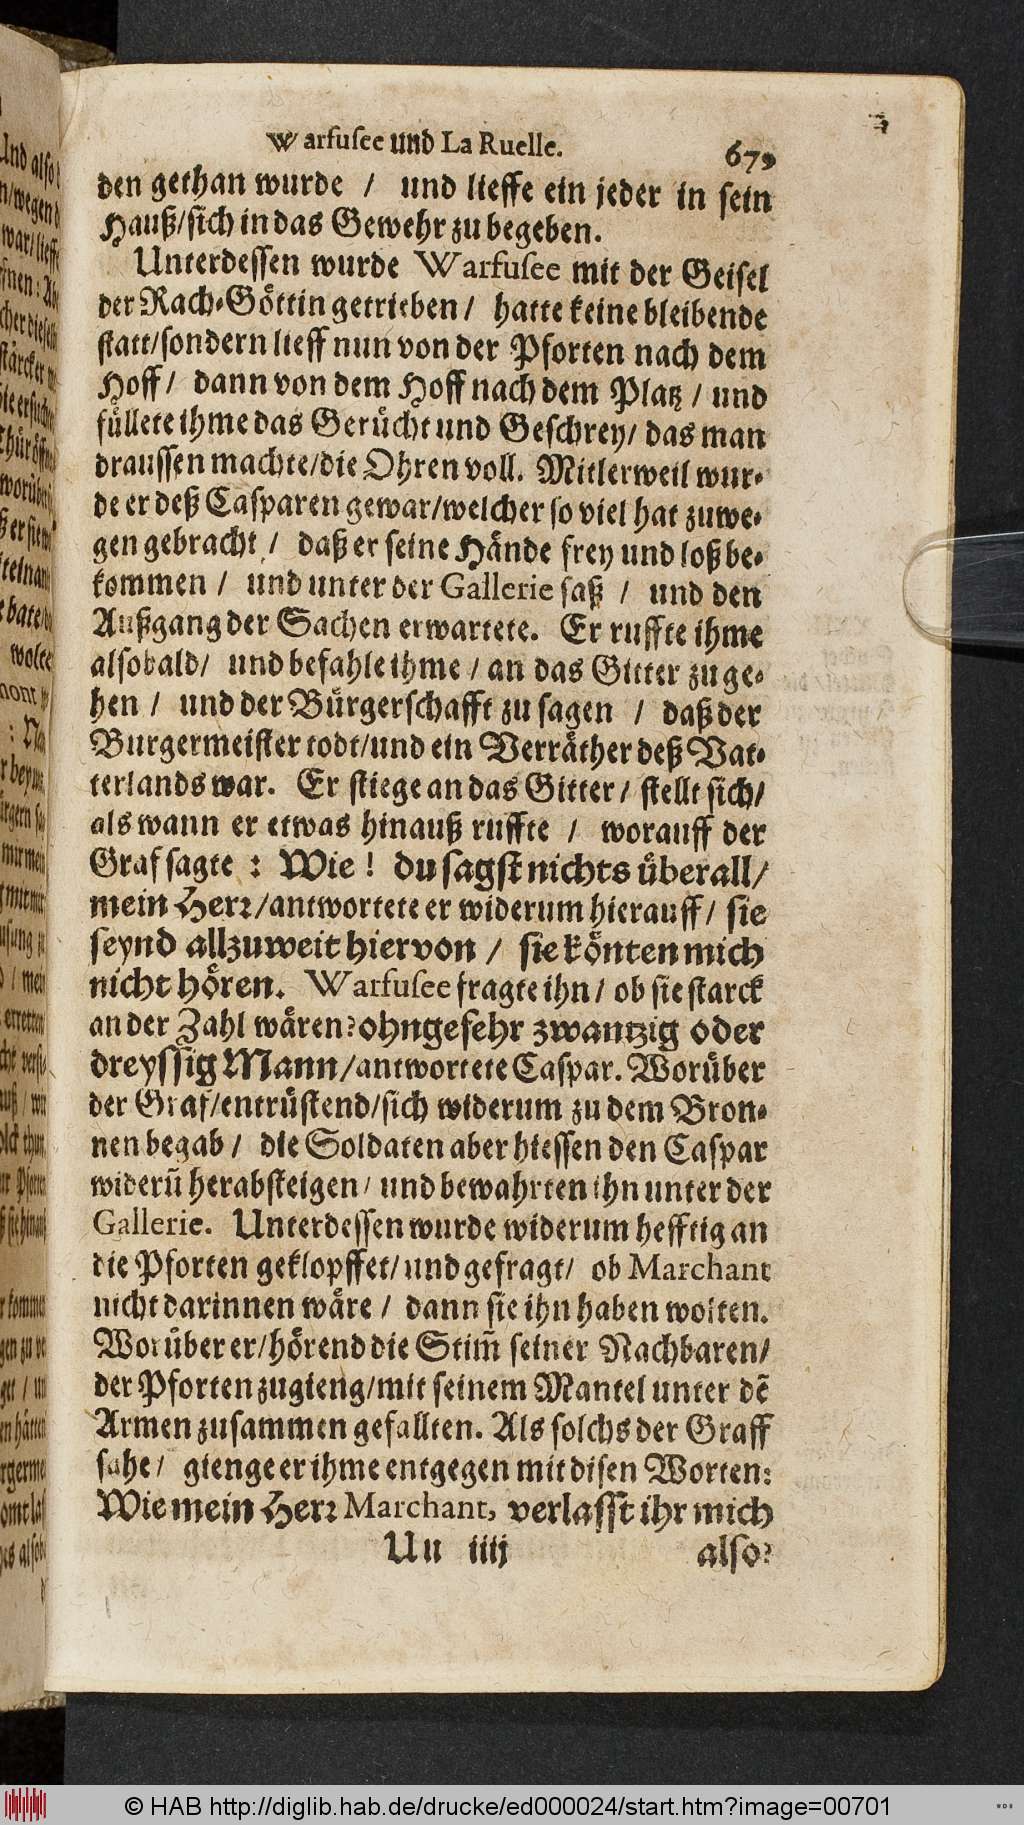 Warfusee und La Ruelle. 679
den gethan wurde / und lieffe ein jeder in sein
Hauß/sich in das Gewehr zu begeben.
Unterdessen wurde Warfusee mit der Geisel
der Rach-Göttin getrieben / hatte keine bleibende
statt/sondern lieff nun von der Pforten nach dem
Hoff / dann von dem Hoff nach dem Platz / und
füllete ihme das Gerücht und Geschrey/ das man
draussen machte/die Ohren voll. Mitlerweil wur-
de er deß Casparen gewar/welcher so viel hat zuwe-
gen gebracht / daß er seine Hände frey und loß be-
kommen / und unter der Gallerie saß / und den
Außgang der Sachen erwartete. Er ruffte ihme
alsobald/ und befahle ihme / an das Gitter zu ge-
hen / und der Bürgerschafft zu sagen / daß der
Burgermeister todt/und ein Verräther deß Vat-
terlands war. Er stiege an das Gitter / stellt sich/
als wann er etwas hinauß ruffte / worauff der
Graf sagte : Wie ! du sagst nichts überall/
mein Herr/antwortete er widerum hierauff / sie
seynd allzuweit hiervon / sie könten mich
nicht hören. Warfusee fragte ihn / ob sie starck
an der Zahl wären? ohngefehr zwantzig oder
dreyssig Mann/antwortete Caspar. Worüber
der Graf/entrüstend/sich widerum zu dem Bron-
nen begab / die Soldaten aber hiessen den Caspar
widerū herabsteigen / und bewahrten ihn unter der
Gallerie. Unterdessen wurde widerum hefftig an
die Pforten geklopffet/und gefragt/ ob Marchant
nicht darinnen wäre / dann sie ihn haben wolten.
Worüber er/hörend die Stim̃ seiner Nachbaren/
der Pforten zugieng/mit seinem Mantel unter dē
Armen zusammen gefallten. Als solchs der Graff
sahe / gienge er ihme entgegen mit disen Worten:
Wie mein Herr Marchant, verlasst ihr mich
Uu iiij also?
© HAB http://diglib.hab.de/drucke/ed000024/start.htm?image=00701